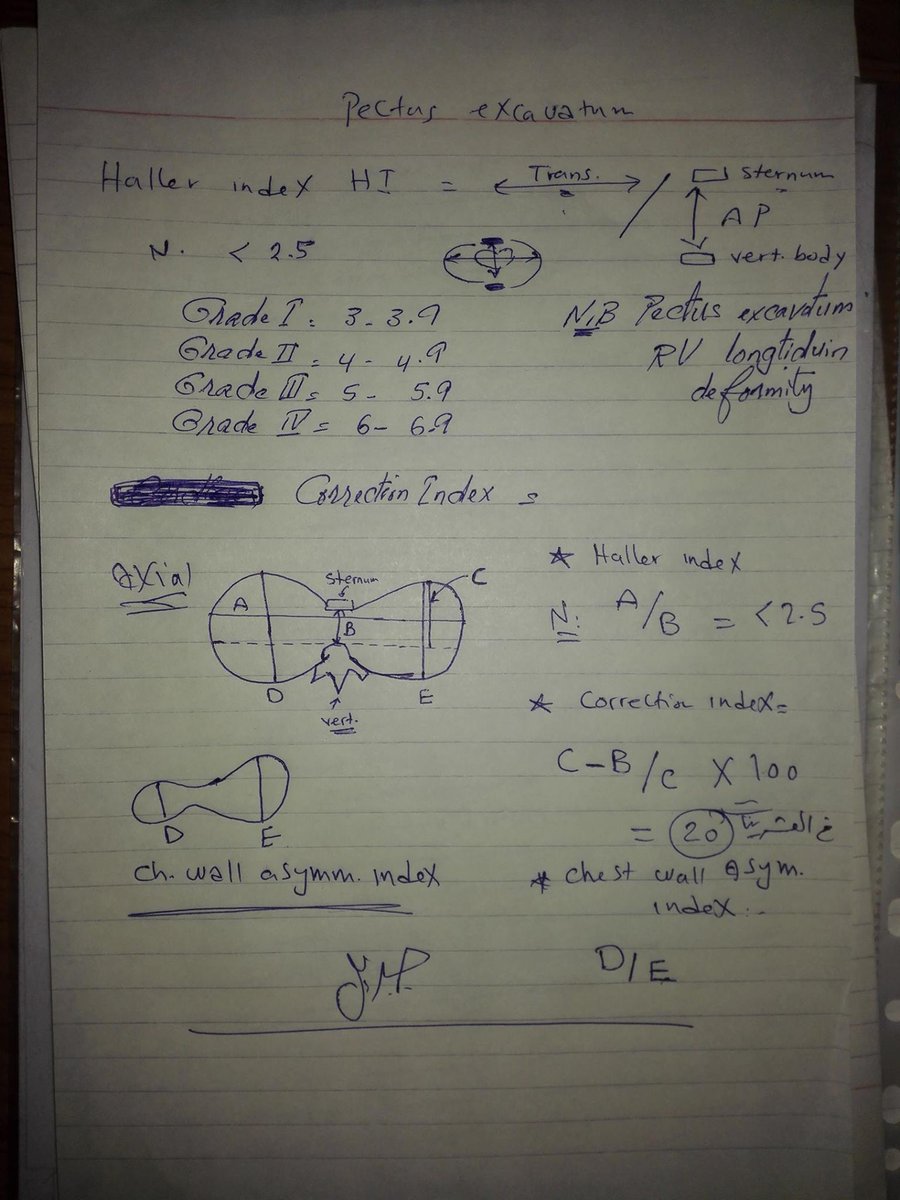 Pectus excavatum
Haller index HI = Trans. / sternum
AP
N. < 2.5
vert. body
Grade I = 3 - 3.9
Grade II = 4 - 4.9
Grade III = 5 - 5.9
Grade IV = 6 - 6.9
N.B Pectus excavatum
RV longtiduin
deformity
Correction Index =
axial
sternum
C
A
B
D
E
vert.
* Haller index
N: A/B = < 2.5
* Correction index =
C-B/C X 100
= 20
D
E
Ch. wall asymm. index
* Chest wall Asym.
index..
D/E